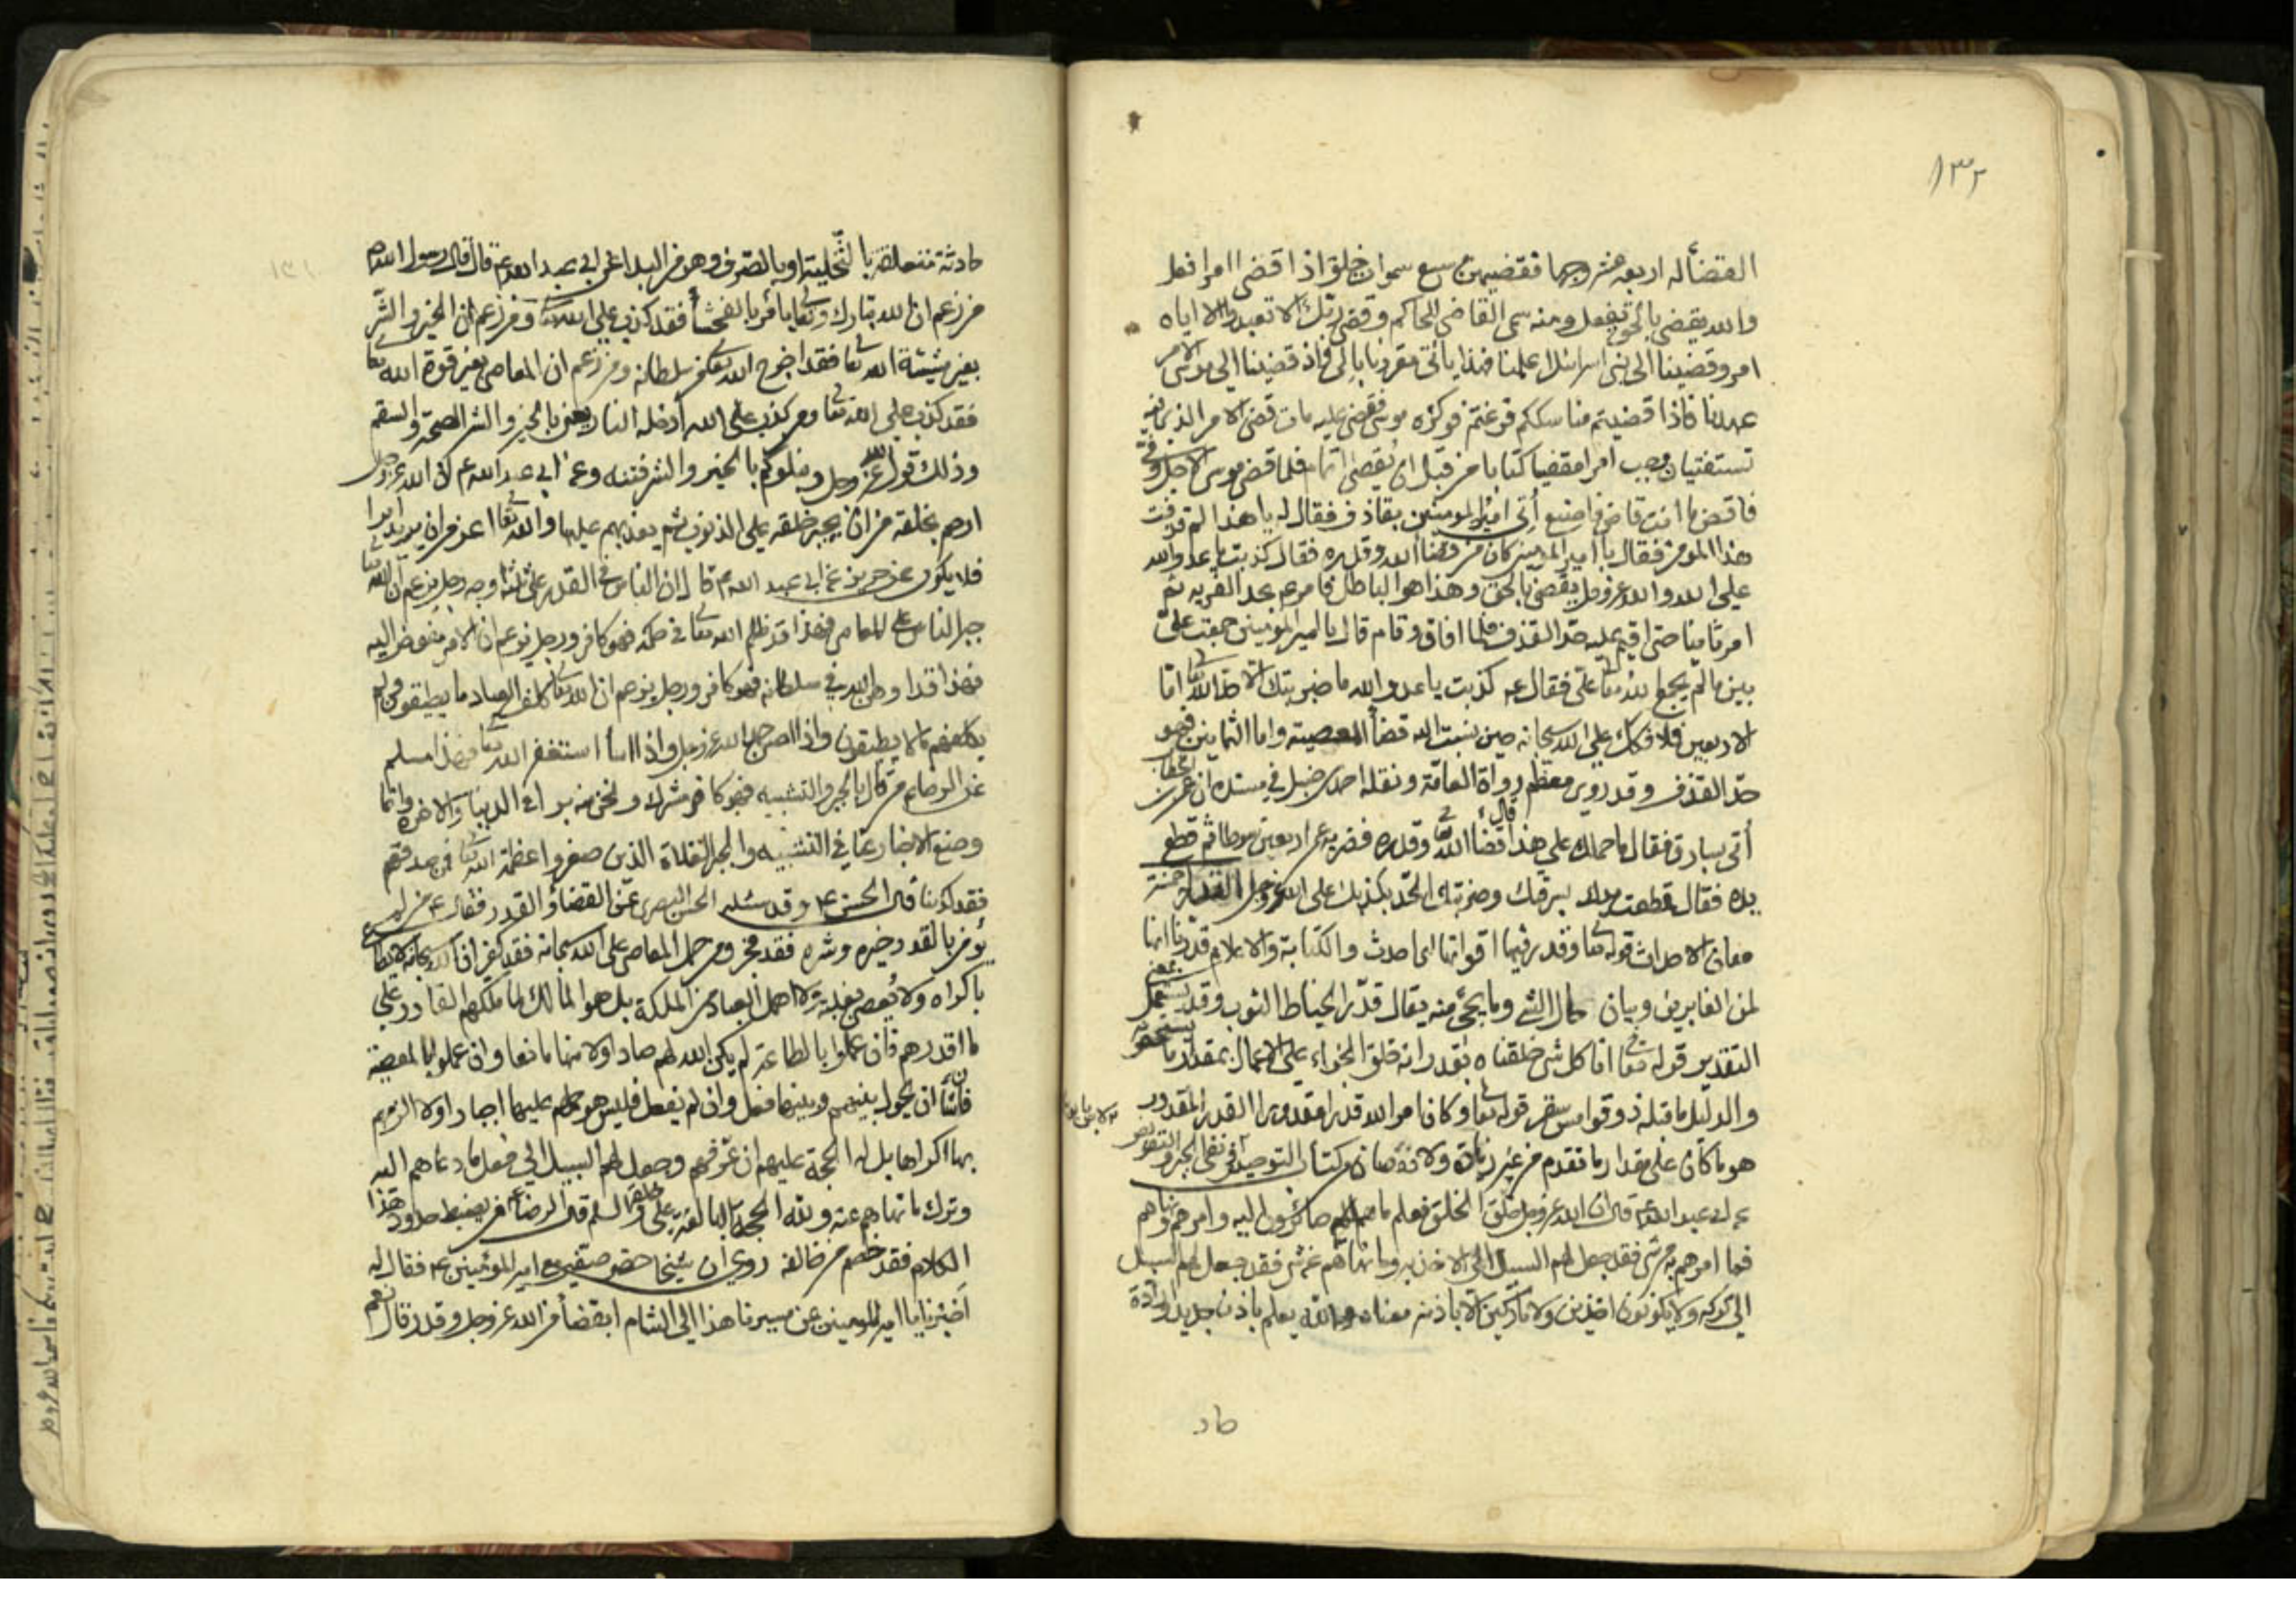 ١٣٢
القضاء له اربعة عشر وجها فقضيهن سبع سموات خلق اذا قضى امرا فعل
والله يقضي بالحق يفعل ومنه سمى القاضى الحاكم وقضى ربك الا تعبدوا الا اياه
امر وقضينا الى بنى اسرائيل علمنا فهذا ياتى مقرونا بالى فاذ قضينا الى موسى الامر
عهدنا فاذا قضيتم مناسككم فرغتم فوكزه موسى فقضى عليه مات قضى الامر الذى فيه
تستفتيان وجب امرا مقضيا كتابا من قبل ان يقضى اتمام فلما قضى موسى الاجل وفى
فاقض ما انت قاض فاصنع أتى امير المومنين بقاذف فقال له يا هذا لم قذفت
هذا المومن فقال يا امير المومنين كان من قضاء الله وقدره فقال كذبت يا عدو الله
على الله والله عز وجل يقضى بالحق وهذا هو الباطل فامر عم بحد الفريه ثم
امر ثامنا حتى اقيم عليه حد القذف فلما افاق وقام قال يا امير المومنين جمعت على
بين ما لم يجمع الله تعا على فقال عم كذبت يا عدو الله ما ضربتك الا حد الله تعا اما
الاربعين فلافكك على الله سبحانه حين نسبت اليه قضاء المعصيته واما الثمانين فهو
حد القذف وقد روى معظم رواة العامة ونقله احمد بن حنبل فى مسنده ان عمر بن الخطاب
أتى بسارق فقال ما حملك على هذا قال قضاء الله تعا وقدره فضربه عمر اربعين سوطا ثم قطع
يده فقال قطعت يدك بسرقتك وضربتك الحد بكذبك على الله عز وجل القدر خمسة
معان الاحداث قوله تعا وقدر فيها اقواتها اى احدث والكتابة والاعلام قدرنا انها
لمن الغابرين وبيان كمال الشئ وما يجئ منه يقال قدر الخياط الثوب وقد يستعمل بمعنى
التقدير قوله تعا انا كل شئ خلقناه بقدر انه خلق الجزاء على الاعمال بمقدار ما يستحق به
والدليل ما قبله ذوقوا مس سقر قوله تعا وكان امر الله قدرا مقدورا القدر المقدور
هو ما كان على مقدار ما تقدم من غير زيادة ولا نقصان من كتاب التوحيد فى نفى الجبر والتفويض
عن ابى عبد الله عم قال ان الله عز وجل خلق الخلق فعلم ما هم صائرون اليه وامرهم ونهاهم
فما امرهم به من شئ فقد جعل لهم السبيل الى الاخذ به وما نهاهم عن شئ فقد جعل لهم السبيل
الى تركه ولا يكونون اخذين ولا تاركين الا باذنه معناه والله يعلم باذن جديد وارادة
حاد
حادثة متعلقة بالتخلية او بالصرف وهو من البداء عن ابى عبد الله عم قال قال رسول الله ص
من زعم ان الله تبارك وتعا يامر بالفحشاء فقد كذب على الله تعا ومن زعم ان الخير والشر
بغير مشيئة الله تعا فقد اخرج الله تعا من سلطانه ومن زعم ان المعاصى بغير قوة الله تعا
فقد كذب على الله تعا ومن كذب على الله أدخله النار يعنى بالخير والشر الصحة والسقم
وذلك قول الله عز وجل ونبلوكم بالخير والشر فتنه وعن ابى عبد الله عم ان الله عز وجل
ارحم بخلقه من ان يجبر خلقه على الذنوب ثم يعذبهم عليها والله تعا اعز من ان يريد امرا
فلا يكون عن حريز عن ابى عبد الله عم قال ان الناس فى القدر على ثلثة اوجه رجل يزعم ان الله تعا
جبر الناس على المعاصى فهذا قد ظلم الله تعا فى حكمه فهو كافر ورجل يزعم ان الامر مفوض اليه
فهذا قد اوهن الله فى سلطانه فهو كافر ورجل يزعم ان الله تعا كلف العباد ما يطيقون ولم
يكلفهم ما لا يطيقون واذا احسن حمد الله عز وجل واذا اساء استغفر الله تعا فهذا مسلم
عن الرضا عم من قال بالجبر والتشبيه فهو كافر مشرك ونحن منه براء فى الدنيا والاخرة وانما
وضع الاخبار عنا فى التشبيه والجبر الغلاة الذين صغروا عظمة الله تعا فمن صدقهم
فقد كذبنا قال الحسن عم وقد سئله الحسن البصرى عن القضاء والقدر فقال عم من لم
يؤمن بالقدر خيره وشره فقد فجر ومن حمل المعاصى على الله سبحانه فقد كفر ان الله سبحانه لا يطاع
باكراه ولا يعصى بغلبة ولا اهمل العباد من المملكة بل هو المالك لما ملكهم القادر على
ما اقدرهم فان عملوا بالطاعة لم يكن الله لهم صادا ولا منها مانعا وان عملوا بالمعصية
فان شاء ان يحول بينهم وبينها فعل وان لم يفعل فليس هو حملهم عليها اجبارا ولا الزمهم
بها اكراها بل له الحجة عليهم ان عرفهم وجعل لهم السبيل الى فعل ما دعاهم اليه
وترك ما نهاهم عنه ولله الحجة البالغة على خلقه والسلم قال الرضا عم من يضبط حدود هذا
الكلام فقد خصم من خالفه روى ان شيخا حضر صفين مع امير المؤمنين عم فقال له
أخبرنا يا امير المومنين عن مسيرنا هذا الى الشام ابقضاء من الله عز وجل وقدر قال نعم